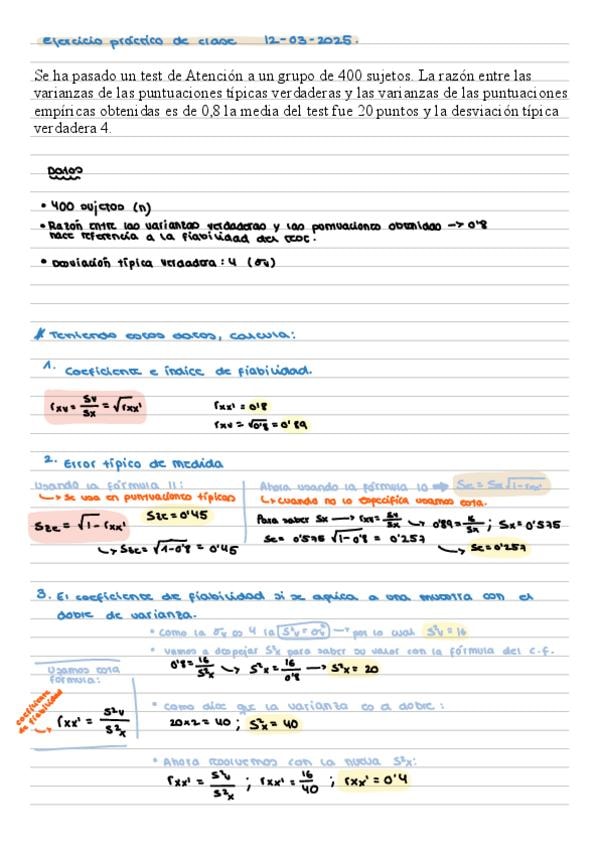 Ejercicio práctico de clase 12-03-2025.
Se ha pasado un test de Atención a un grupo de 400 sujetos. La razón entre las
varianzas de las puntuaciones típicas verdaderas y las varianzas de las puntuaciones
empíricas obtenidas es de 0,8 la media del test fue 20 puntos y la desviación típica
verdadera 4.
Datos
• 400 sujetos (n)
• Razón entre las varianzas verdaderas y las puntuaciones obtenidas → 0'8
hace referencia a la fiabilidad del test.
• Desviación típica verdadera: 4 (σv)
* Teniendo estos datos, calcula:
1. Coeficiente e índice de fiabilidad.
rxv = Sv/Sx = √rxx' rxx' = 0'8
rxv = √0'8 = 0'89
2. Error típico de medida
Usando la fórmula 11:
↳ Se usa en puntuaciones típicas
Sze = √1-rxx' Sze = 0'45
↳ Sze = √1-0'8 = 0'45
Ahora usando la fórmula 10 → Se = Sx√1-rxx'
↳ cuando no lo especifica usamos esta.
Para saber Sx → rxv = Sv/Sx ↳ 0'89 = 16/Sx ; Sx = 0'575
Se = 0'575 √1-0'8 = 0'257
↳ Se = 0'257
3. El coeficiente de fiabilidad si se aplica a una muestra con el
doble de varianza.
Usamos esta
fórmula:
coeficiente
de fiabilidad
rxx' = S²v/S²x
• Como la σv es 4 la S²v = σ²v → por lo cual S²v = 16
• Vamos a despejar S²x para saber su valor con la fórmula del C.F.
0'8 = 16/S²x ↳ S²x = 16/0'8 → S²x = 20
• Como dice que la varianza es el doble:
20x2 = 40 ; S²x = 40
• Ahora resolvemos con la nueva S²x:
rxx' = S²v/S²x ; rxx' = 16/40 ; rxx' = 0'4